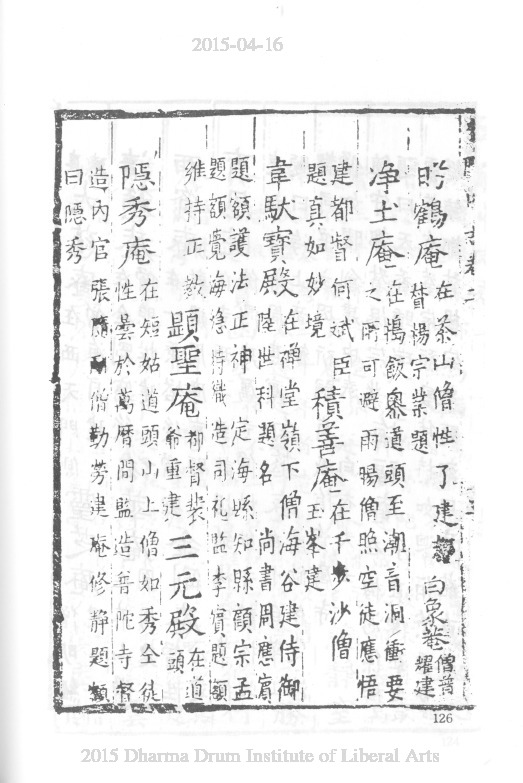 志卷二
盻鶴庵 在茶山僧性了建
督楊宗業題
白象菴 僧普
耀建
净土庵 在搗飯嶴道頭至潮音洞衝要
之所可避雨暘僧照空徒應悟
建都督何斌臣
題真如妙境
積善庵 在千步沙僧
玉峯建
韋馱寶殿 在禪堂嶺下僧海谷建侍御
陸世科題名 尚書周應賔
題額護法正神 定海縣知縣顧宗孟
題額覺海慈持織造司礼監李實題額
維持正教
顯聖庵 都督裴
翁重建
三元殿 在道
頭
隱秀庵 在短姑道頭山上僧如秀仝徒
性曇於萬曆間監造普陀寺督
造內官張隨 偕勤勞建庵修静題額
曰隱秀
126
2015-04-16
2015 Dharma Drum Institute of Liberal Arts